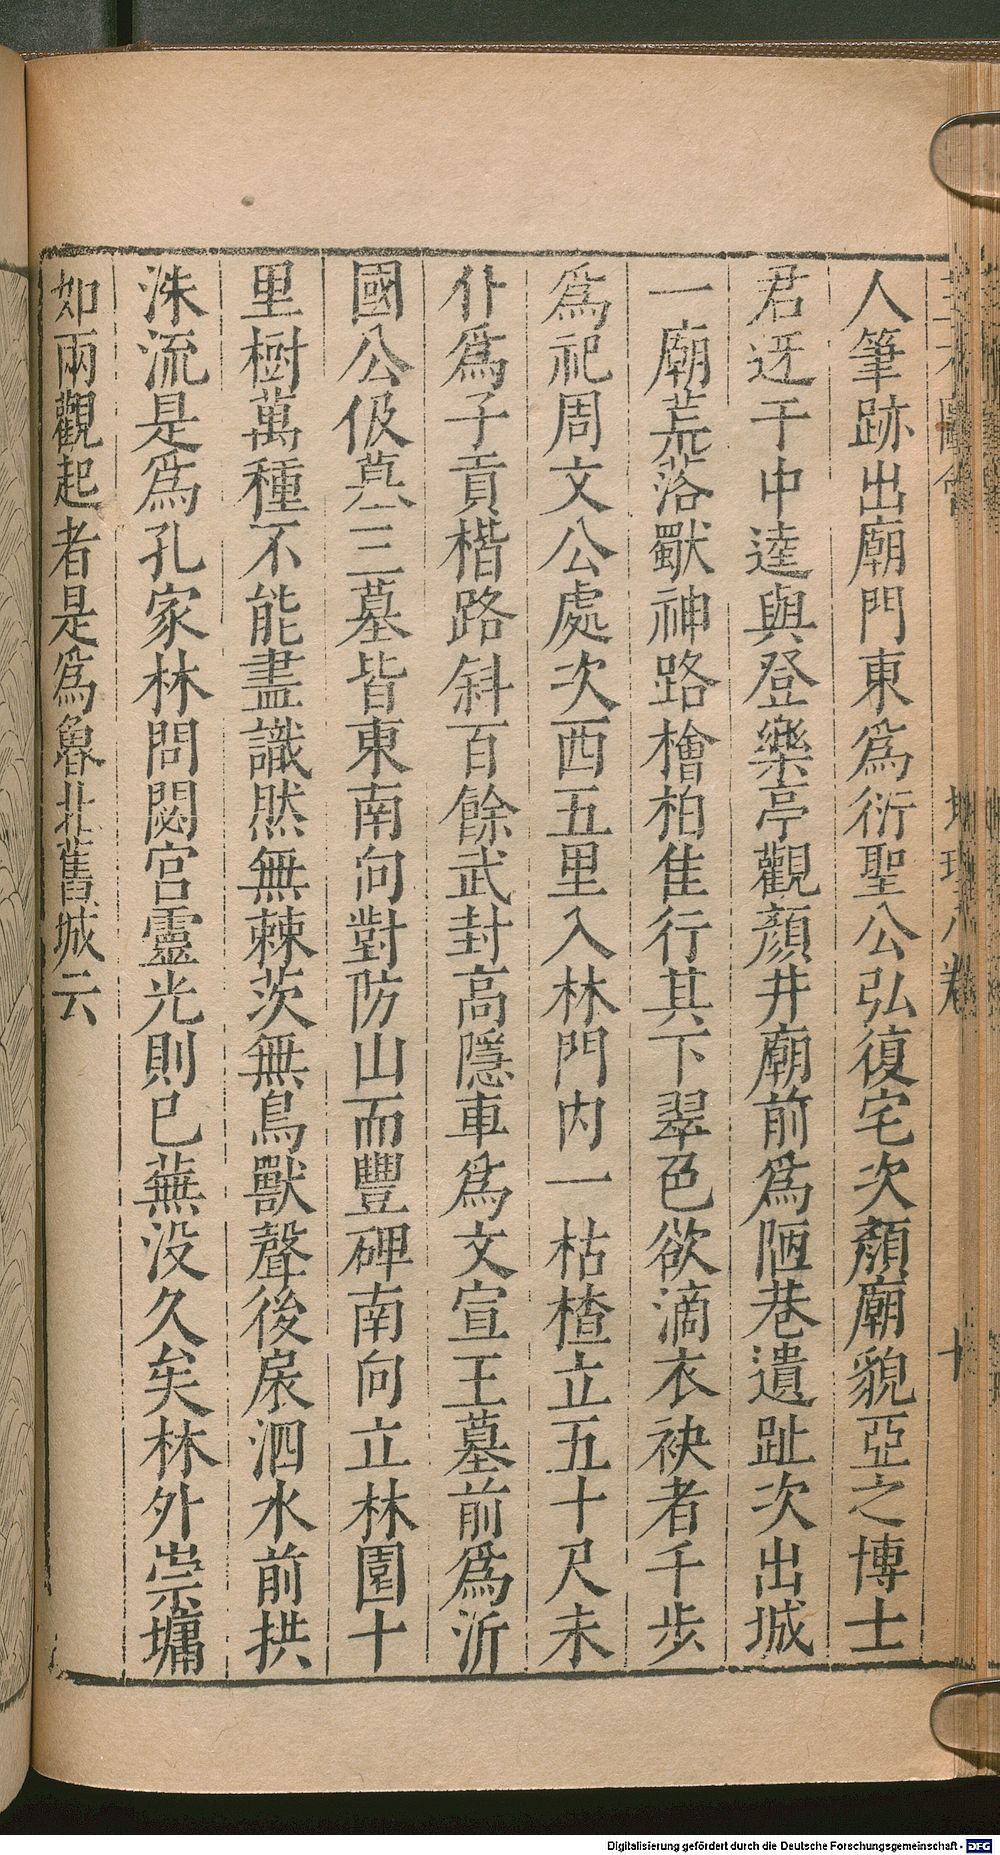 三才圖會
地理八卷
十
人筆跡出廟門東為衍聖公弘復宅次顏廟貌亞之博士
君迓干中逵與登樂亭觀顏井廟前為陋巷遺趾次出城
一廟荒落獸神路檜柏隹行其下翠色欲滴衣袂者千步
為祀周文公處次西五里入林門內一枯楂立五十尺未
仆為子貢楷路斜百餘武封高隱車為文宣王墓前為沂
國公伋墓三墓皆東南向對防山而豐碑南向立林園十
里樹萬種不能盡識然無棘茨無鳥獸聲後扆泗水前拱
洙流是為孔家林問閟宮靈光則已蕪没久矣林外崇墉
如兩觀起者是為魯北舊城云
Digitalisierung gefördert durch die Deutsche Forschungsgemeinschaft - DFG